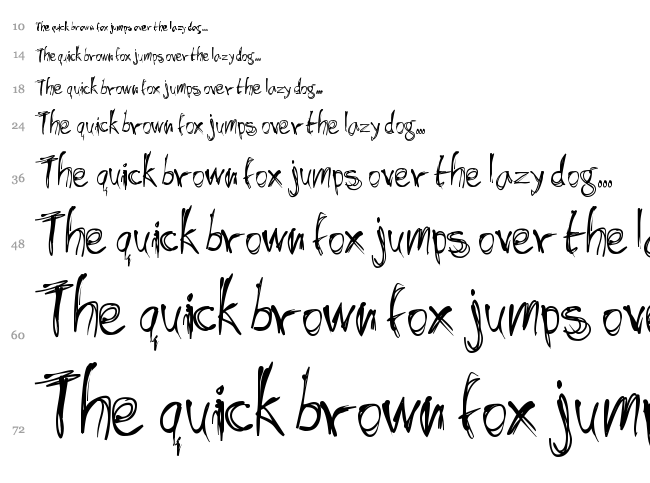 10 The quick brown fox jumps over the lazy dog...
14 The quick brown fox jumps over the lazy dog...
18 The quick brown fox jumps over the lazy dog...
24 The quick brown fox jumps over the lazy dog...
36 The quick brown fox jumps over the lazy dog...
48 The quick brown fox jumps over the l
60 The quick brown fox jumps ove
72 The quick brown fox jump